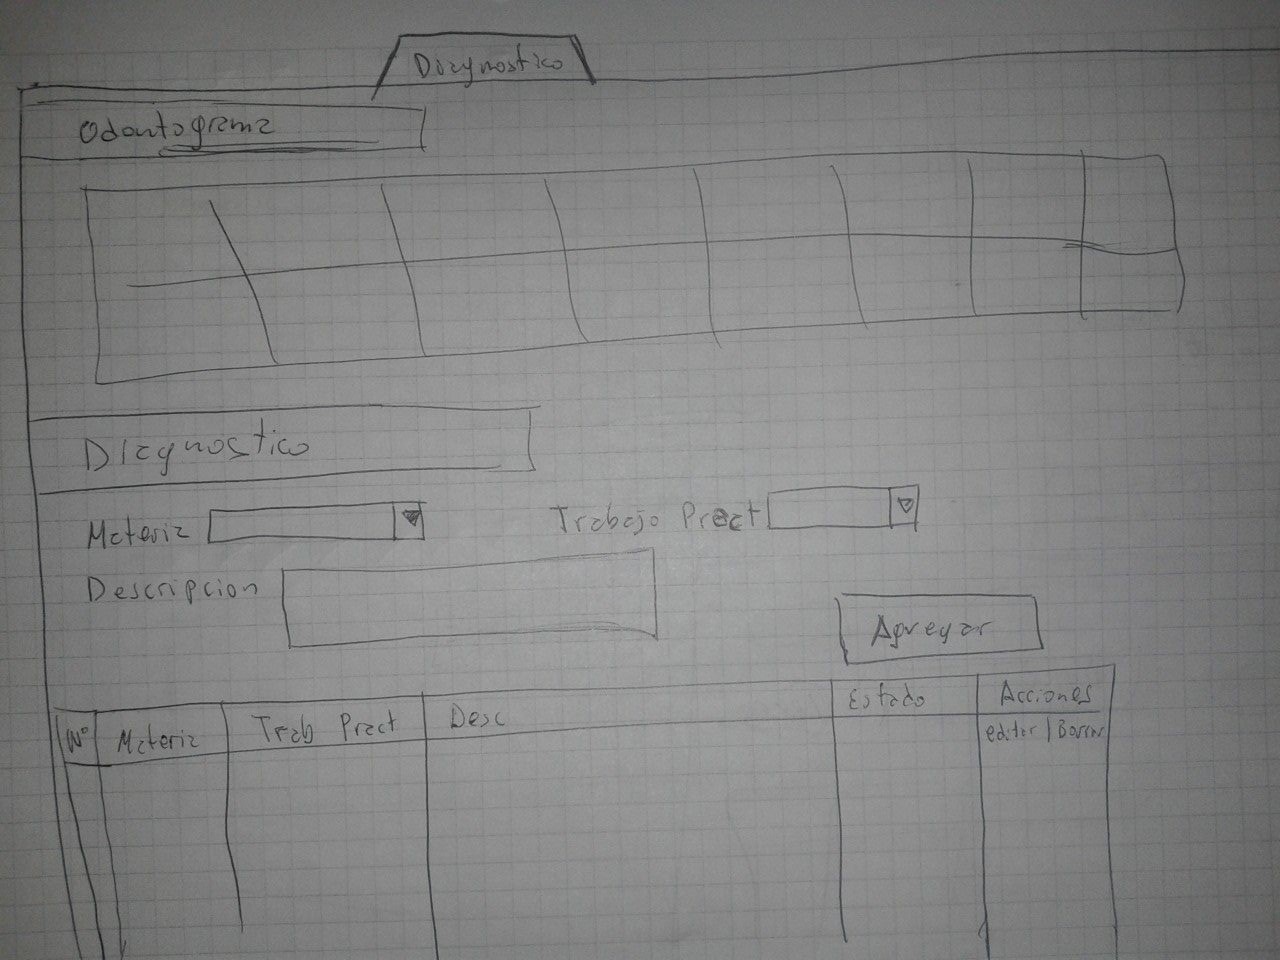 Diagnostico
Odontograma
Diagnostico
Materia Trabajo Pract
Descripcion
Agregar
Nº Materia Trab Pract Desc Estado Acciones
editar | Borrar